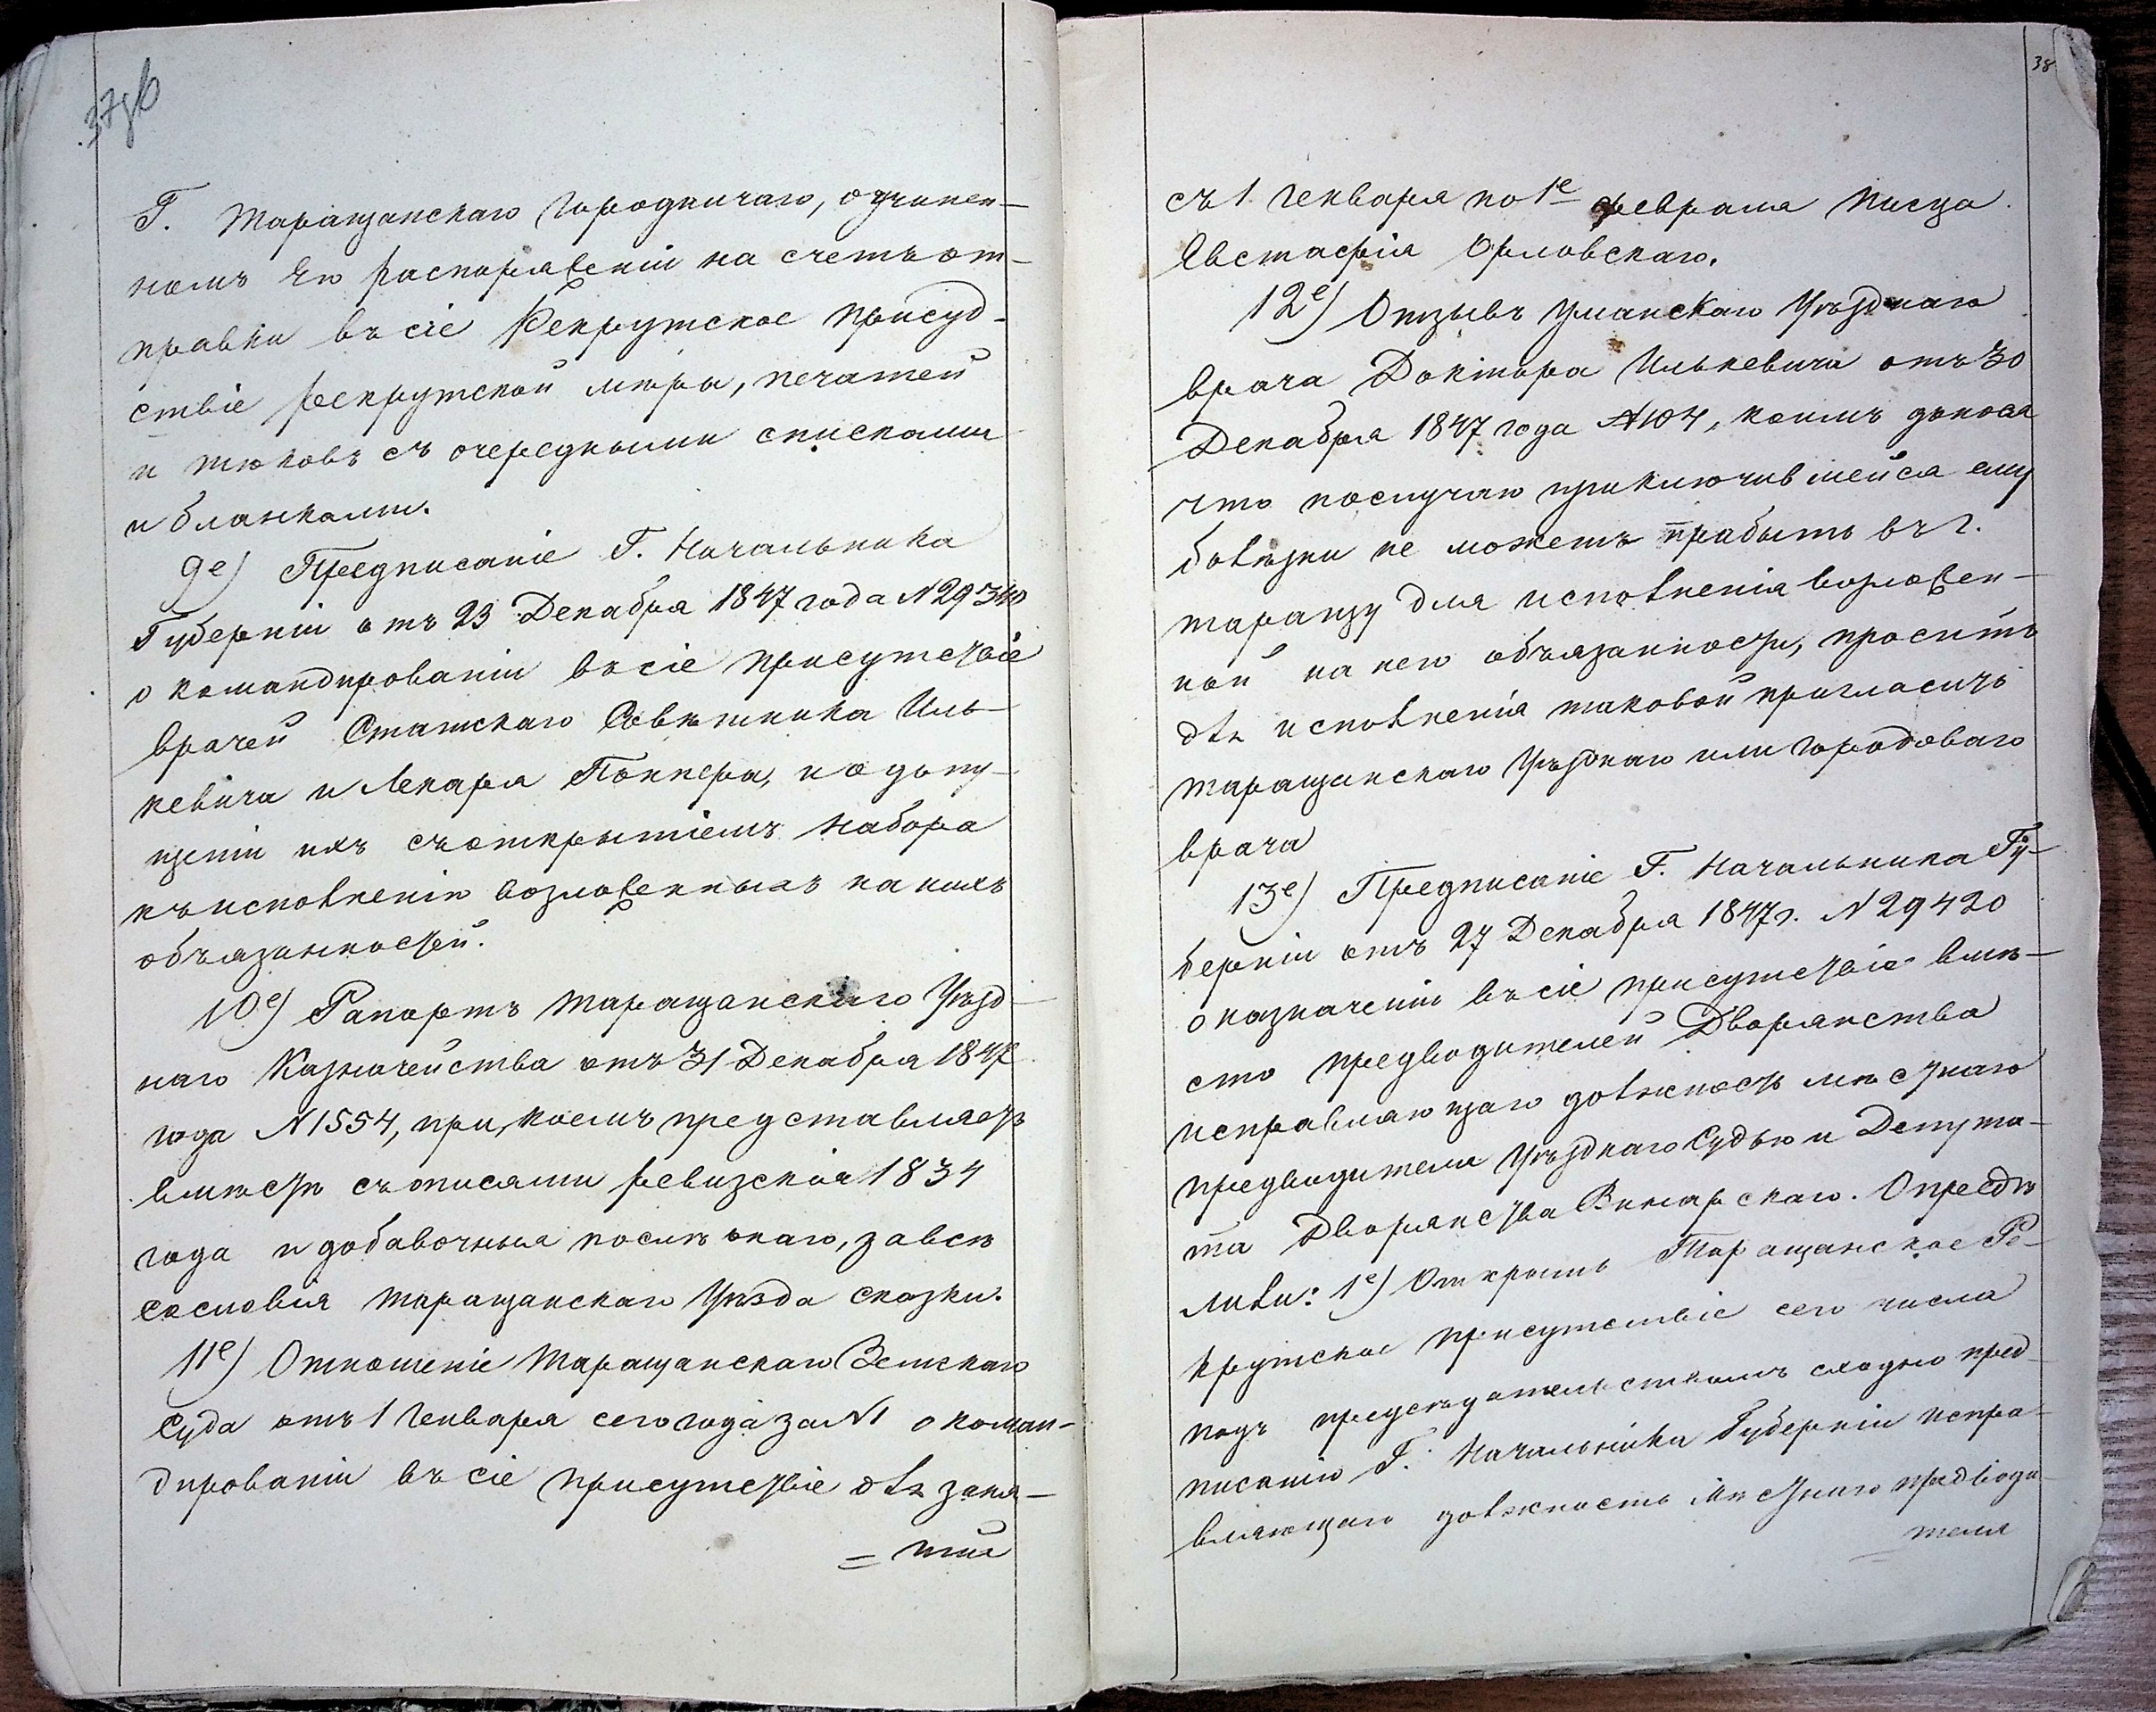 37об
Г. Таращанскаго Городничаго, о учинен-
номъ Его распоряженіи на счетъ от-
правки въ сіе Рекрутское присуд-
ствіе рекрутской мѣры, печатей
и тюковъ съ очередными списками
и бланками.
9е) Предписаніе Г. Начальника
Губерніи отъ 23 Декабря 1847 года N 29340
о командированіи въ сіе присутствіе
врачей Статскаго Совѣтника Иль-
кевича и Лекаря Поппера, и о допу-
щеніи ихъ съ открытіемъ набора
къ исполненію возложенныхъ на нихъ
объязанностей.
10е) Рапортъ Таращанскаго Уѣзд-
наго Казначейства отъ 31 Декабря 1847
года N 1554, при коемъ представляетъ
вмѣстѣ съ описями ревизскія 1834
года и добавочныя послѣ онаго, за всѣ
сословія Таращанскаго Уѣзда сказки.
11е) Отношеніе Таращанскаго Земскаго
Суда отъ 1 Генваря сего года за N 1 о коман-
дированіи въ сіе присутствіе для заня-
= тій
38
съ 1 Генваря по 1е Февраля писца
Евстафія Орловскаго.
12е) Отзывъ Уманскаго Уѣзднаго
врача Доктора Илькевича отъ 30
Декабря 1847 года N 104, коимъ донося
что послучаю приключившейся ему
болѣзни не можетъ прибыть въ г.
Таращу для исполненія возложен-
ной на него объязанности, проситъ
для исполненія таковой пригласить
Таращанскаго Уѣзднаго или городоваго
врача
13е) Предписаніе Г. Начальника Гу-
берніи отъ 27 Декабря 1847 г. N 29420
о назначеніи въ сіе присутствіе вмѣ-
сто предводителей Дворянства
исправляющаго должность мѣстнаго
предводителя Уѣзднаго Судью и Депута-
та Дворянства Винарскаго. Опредѣ
лили: 1е) Открыть Таращанское Ре-
крутское присутствіе сего числа
подъ предсѣдательствомъ сходно пред-
писанію Г. Начальника Губерніи испра-
вляющаго должность мѣстнаго предводи-
теля